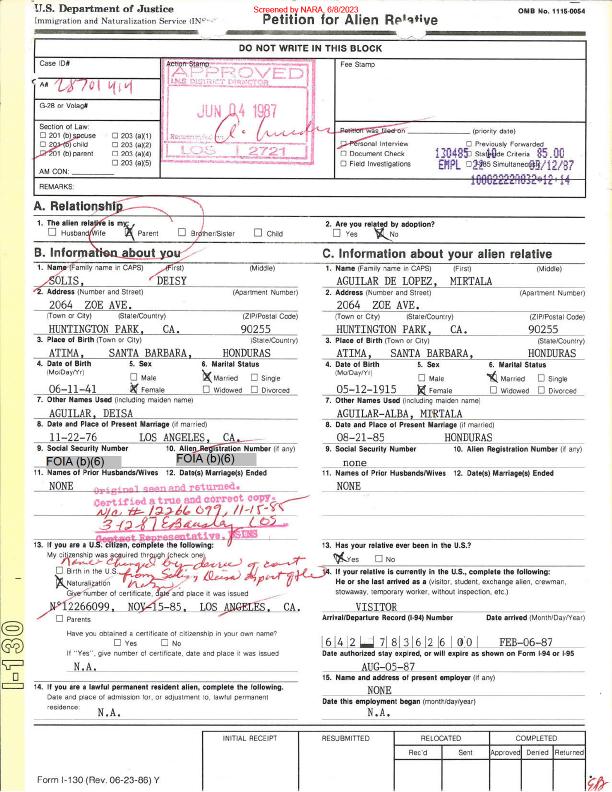 U.S. Department of Justice
Immigration and Naturalization Service (IN
Screened by NARA, 6/8/2023
Petition for Alien Relative
OMB No. 1115-0054
DO NOT WRITE IN THIS BLOCK
Case ID#
Action Stamp
Fee Stamp
A# 28701414
G-28 or Volag#
APPROVED
INS DISTRICT DIRECTOR
JUN 04 1987
LOS 2721
Section of Law:
201 (b) spouse 203 (a)(1)
201 (b) child 203 (a)(2)
201 (b) parent 203 (a)(4)
203 (a)(5)
AM CON:
Petition was filed on (priority date)
Personal Interview Previously Forwarded
Document Check Criteria
Field Investigations Simultaneous
130485 85.00
EMPL
REMARKS:
A. Relationship
1. The alien relative is my:
Husband/Wife X Parent Brother/Sister Child
2. Are you related by adoption?
Yes X No
B. Information about you
1. Name (Family name in CAPS) (First) (Middle)
SOLIS, DEISY
2. Address (Number and Street) (Apartment Number)
2064 ZOE AVE.
(Town or City) (State/Country) (ZIP/Postal Code)
HUNTINGTON PARK, CA. 90255
3. Place of Birth (Town or City) (State/Country)
ATIMA, SANTA BARBARA, HONDURAS
4. Date of Birth (Mo/Day/Yr) 5. Sex 6. Marital Status
Male X Married Single
06-11-41 X Female Widowed Divorced
7. Other Names Used (including maiden name)
AGUILAR, DEISA
8. Date and Place of Present Marriage (if married)
11-22-76 LOS ANGELES, CA.
9. Social Security Number 10. Alien Registration Number (if any)
FOIA (b)(6) FOIA (b)(6)
11. Names of Prior Husbands/Wives 12. Date(s) Marriage(s) Ended
NONE
Original seen and returned.
Certified a true and correct copy.
N/c # 12266099, 11-15-85
3-12-87 LOS
Contact Representative,
13. If you are a U.S. citizen, complete the following:
My citizenship was acquired through (check one)
Name Changed by decree of court
from Solis, Deisa
Birth in the U.S.
X Naturalization
Give number of certificate, date and place it was issued
N°12266099, NOV-15-85, LOS ANGELES, CA.
Parents
Have you obtained a certificate of citizenship in your own name?
Yes No
If "Yes", give number of certificate, date and place it was issued
N.A.
14. If you are a lawful permanent resident alien, complete the following.
Date and place of admission for, or adjustment to, lawful permanent
residence:
N.A.
C. Information about your alien relative
1. Name (Family name in CAPS) (First) (Middle)
AGUILAR DE LOPEZ, MIRTALA
2. Address (Number and Street) (Apartment Number)
2064 ZOE AVE.
(Town or City) (State/Country) (ZIP/Postal Code)
HUNTINGTON PARK, CA. 90255
3. Place of Birth (Town or City) (State/Country)
ATIMA, SANTA BARBARA, HONDURAS
4. Date of Birth (Mo/Day/Yr) 5. Sex 6. Marital Status
Male X Married Single
05-12-1915 X Female Widowed Divorced
7. Other Names Used (including maiden name)
AGUILAR-ALBA, MIRTALA
8. Date and Place of Present Marriage (if married)
08-21-85 HONDURAS
9. Social Security Number 10. Alien Registration Number (if any)
none
11. Names of Prior Husbands/Wives 12. Date(s) Marriage(s) Ended
NONE
13. Has your relative ever been in the U.S.?
X Yes No
14. If your relative is currently in the U.S., complete the following:
He or she last arrived as a (visitor, student, exchange alien, crewman,
stowaway, temporary worker, without inspection, etc.)
VISITOR
Arrival/Departure Record (I-94) Number Date arrived (Month/Day/Year)
642 783626 00 FEB-06-87
Date authorized stay expired, or will expire as shown on Form I-94 or I-95
AUG-05-87
15. Name and address of present employer (if any)
NONE
Date this employment began (month/day/year)
N.A.
I-130
INITIAL RECEIPT RESUBMITTED RELOCATED COMPLETED
Rec'd Sent Approved Denied Returned
Form I-130 (Rev. 06-23-86) Y